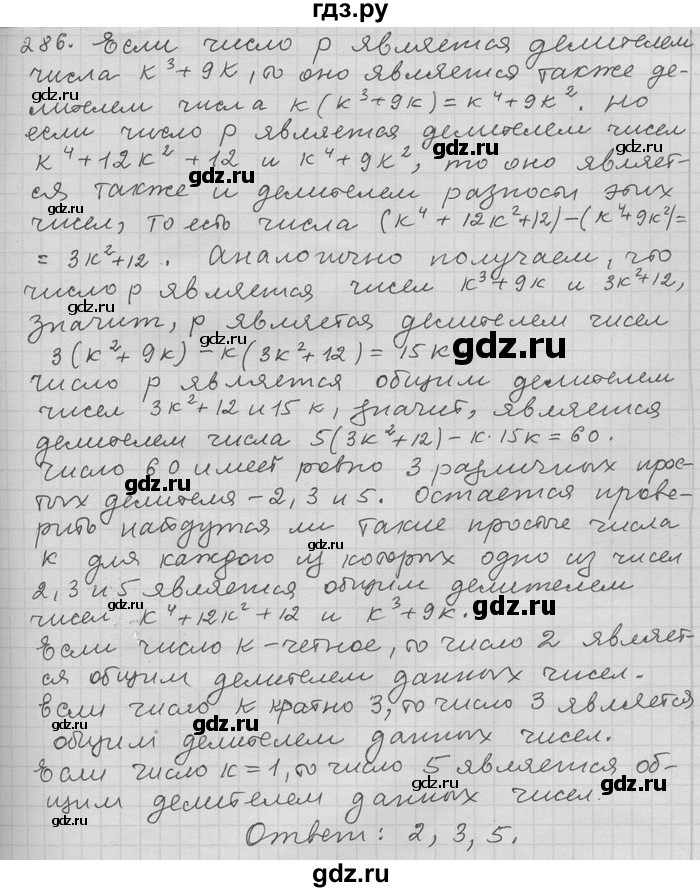 гдз.ру
286. Если число p является делителем
числа к³+9к, то оно является также де-
лителем числа к(к³+9к)=к⁴+9к². Но
если число p является делителем чисел
к⁴+12к²+12 и к⁴+9к², то оно являет-
ся также и делителем разности этих
чисел, то есть числа (к⁴+12к²+12)-(к⁴+9к²)=
= 3к²+12. Аналогично получаем, что
число p является чисел к³+9к и 3к²+12,
значит, p является делителем чисел
3(к²+9к)-к(3к²+12)=15к
число p является общим делителем
чисел 3к²+12 и 15к, значит, является
делителем числа 5(3к²+12)-к·15к=60.
Число 60 имеет ровно 3 различных прос-
тых делителя-2, 3 и 5. Остается прове-
рить найдутся ли такие простые числа
к для каждого из которых одно из чисел
2, 3 и 5 является общим делителем
чисел к⁴+12к²+12 и к³+9к.
Если число к-четное, то число 2 являет-
ся общим делителем данных чисел.
Если число к кратно 3, то число 3 является
общим делителем данных чисел.
Если число к=1, то число 5 является об-
щим делителем данных чисел.
Ответ: 2, 3, 5.
gdz.ru
gdz.ru
gdz.ru
gdz.ru
gdz.ru
gdz.ru
gdz.ru
gdz.ru
gdz.ru
gdz.ru
gdz.ru
gdz.ru
gdz.ru
gdz.ru
gdz.ru
gdz.ru
gdz.ru
gdz.ru
gdz.ru
гдз.ру